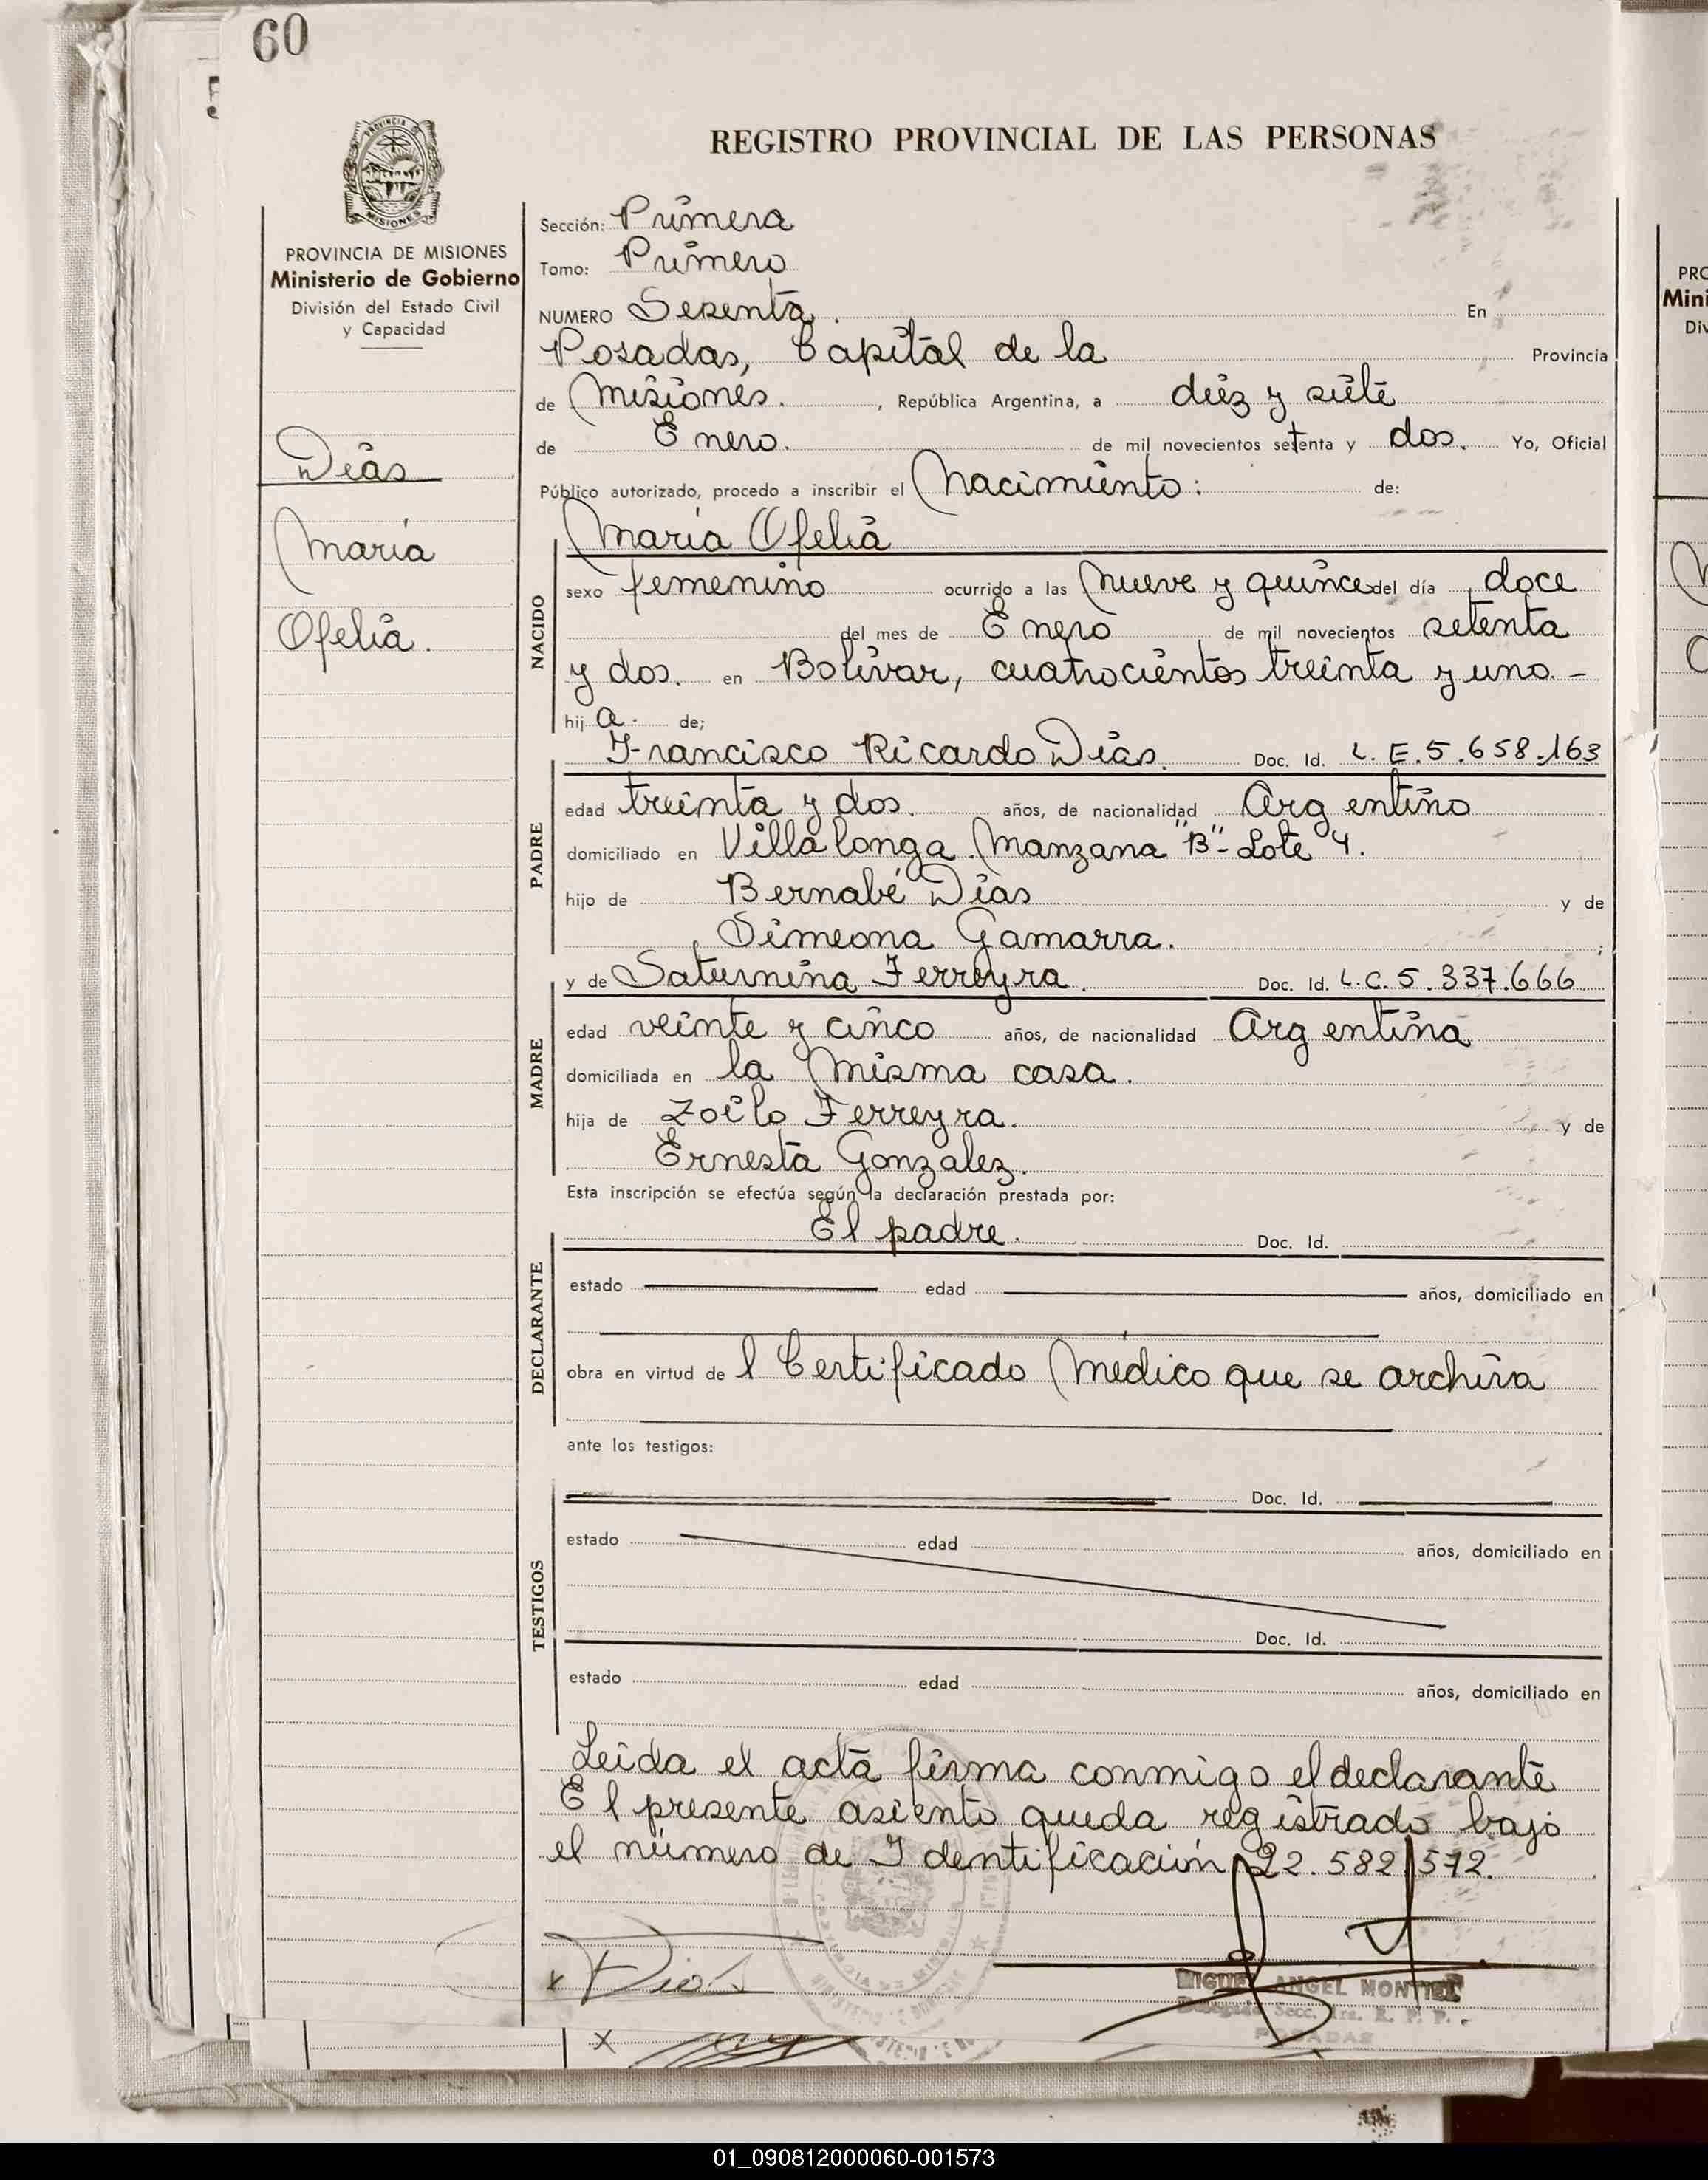 60
PROVINCIA DE
MISIONES
PROVINCIA DE MISIONES
Ministerio de Gobierno
División del Estado Civil
y Capacidad
Dias
Maria
Ofelia.
REGISTRO PROVINCIAL DE LAS PERSONAS
Sección: Primera
Tomo: Primero
NUMERO Sesenta. En
Posadas, Capital de la Provincia
de Misiones. , República Argentina, a diez y siete
de Enero. de mil novecientos setenta y dos. Yo, Oficial
Público autorizado, procedo a inscribir el Nacimiento: de:
NACIDO
María Ofelia
sexo femenino ocurrido a las Nueve y quince del día doce
del mes de Enero de mil novecientos setenta
y dos. en Bolívar, cuatrocientos treinta y uno. -
hij a. de;
PADRE
Francisco Ricardo Dias. Doc. Id. L.E.5.658.163
edad treinta y dos. años, de nacionalidad Argentino
domiciliado en Villa longa. Manzana "B"- Lote 4.
hijo de Bernabé Dias y de
Simeona Gamarra. ;
MADRE
y de Saturnina Ferreyra. Doc. Id. L.C. 5.337.666
edad veinte y cinco años, de nacionalidad Argentina
domiciliada en la Misma casa.
hija de Zoilo Ferreyra. y de
Ernesta Gonzalez.
Esta inscripción se efectúa según la declaración prestada por:
DECLARANTE
El padre. Doc. Id.
estado edad años, domiciliado en
obra en virtud de l Certificado Médico que se archiva
ante los testigos:
TESTIGOS
Doc. Id.
estado edad años, domiciliado en
Doc. Id.
estado edad años, domiciliado en
Leida el acta firma conmigo el declarante
El presente asiento queda registrado bajo
el número de Identificación 22.582.572.
x Dias
MIGUEL ANGEL MONTIEL
Delegado Secc. 1ra. R. P. P.
POSADAS
X
PRO
Mini
Div
01_090812000060-001573